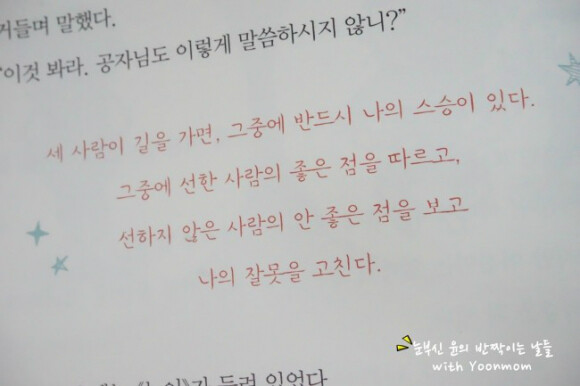 거들며 말했다.
“이것 봐라. 공자님도 이렇게 말씀하시지 않니?”
세 사람이 길을 가면, 그중에 반드시 나의 스승이 있다.
그중에 선한 사람의 좋은 점을 따르고,
선하지 않은 사람의 안 좋은 점을 보고
나의 잘못을 고친다.
눈부신 윤의 반짝이는 날들
with Yoonmom
들려 있었다